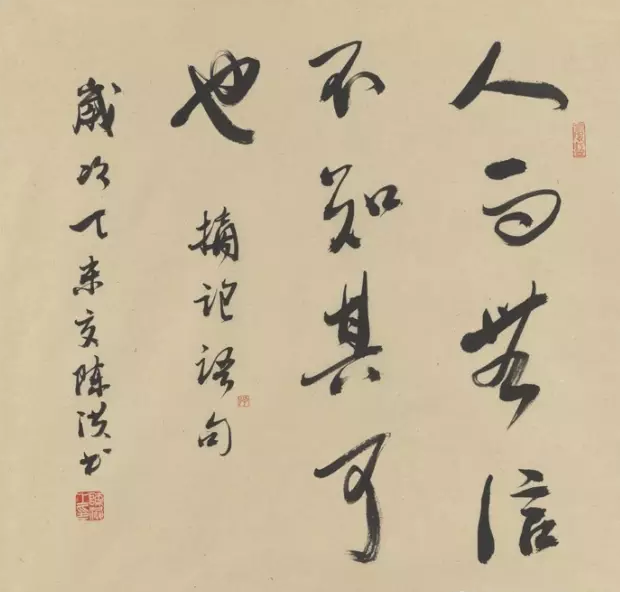 人而無信
不知其可
也
摘论语句
歲次乙未夏陈洪书